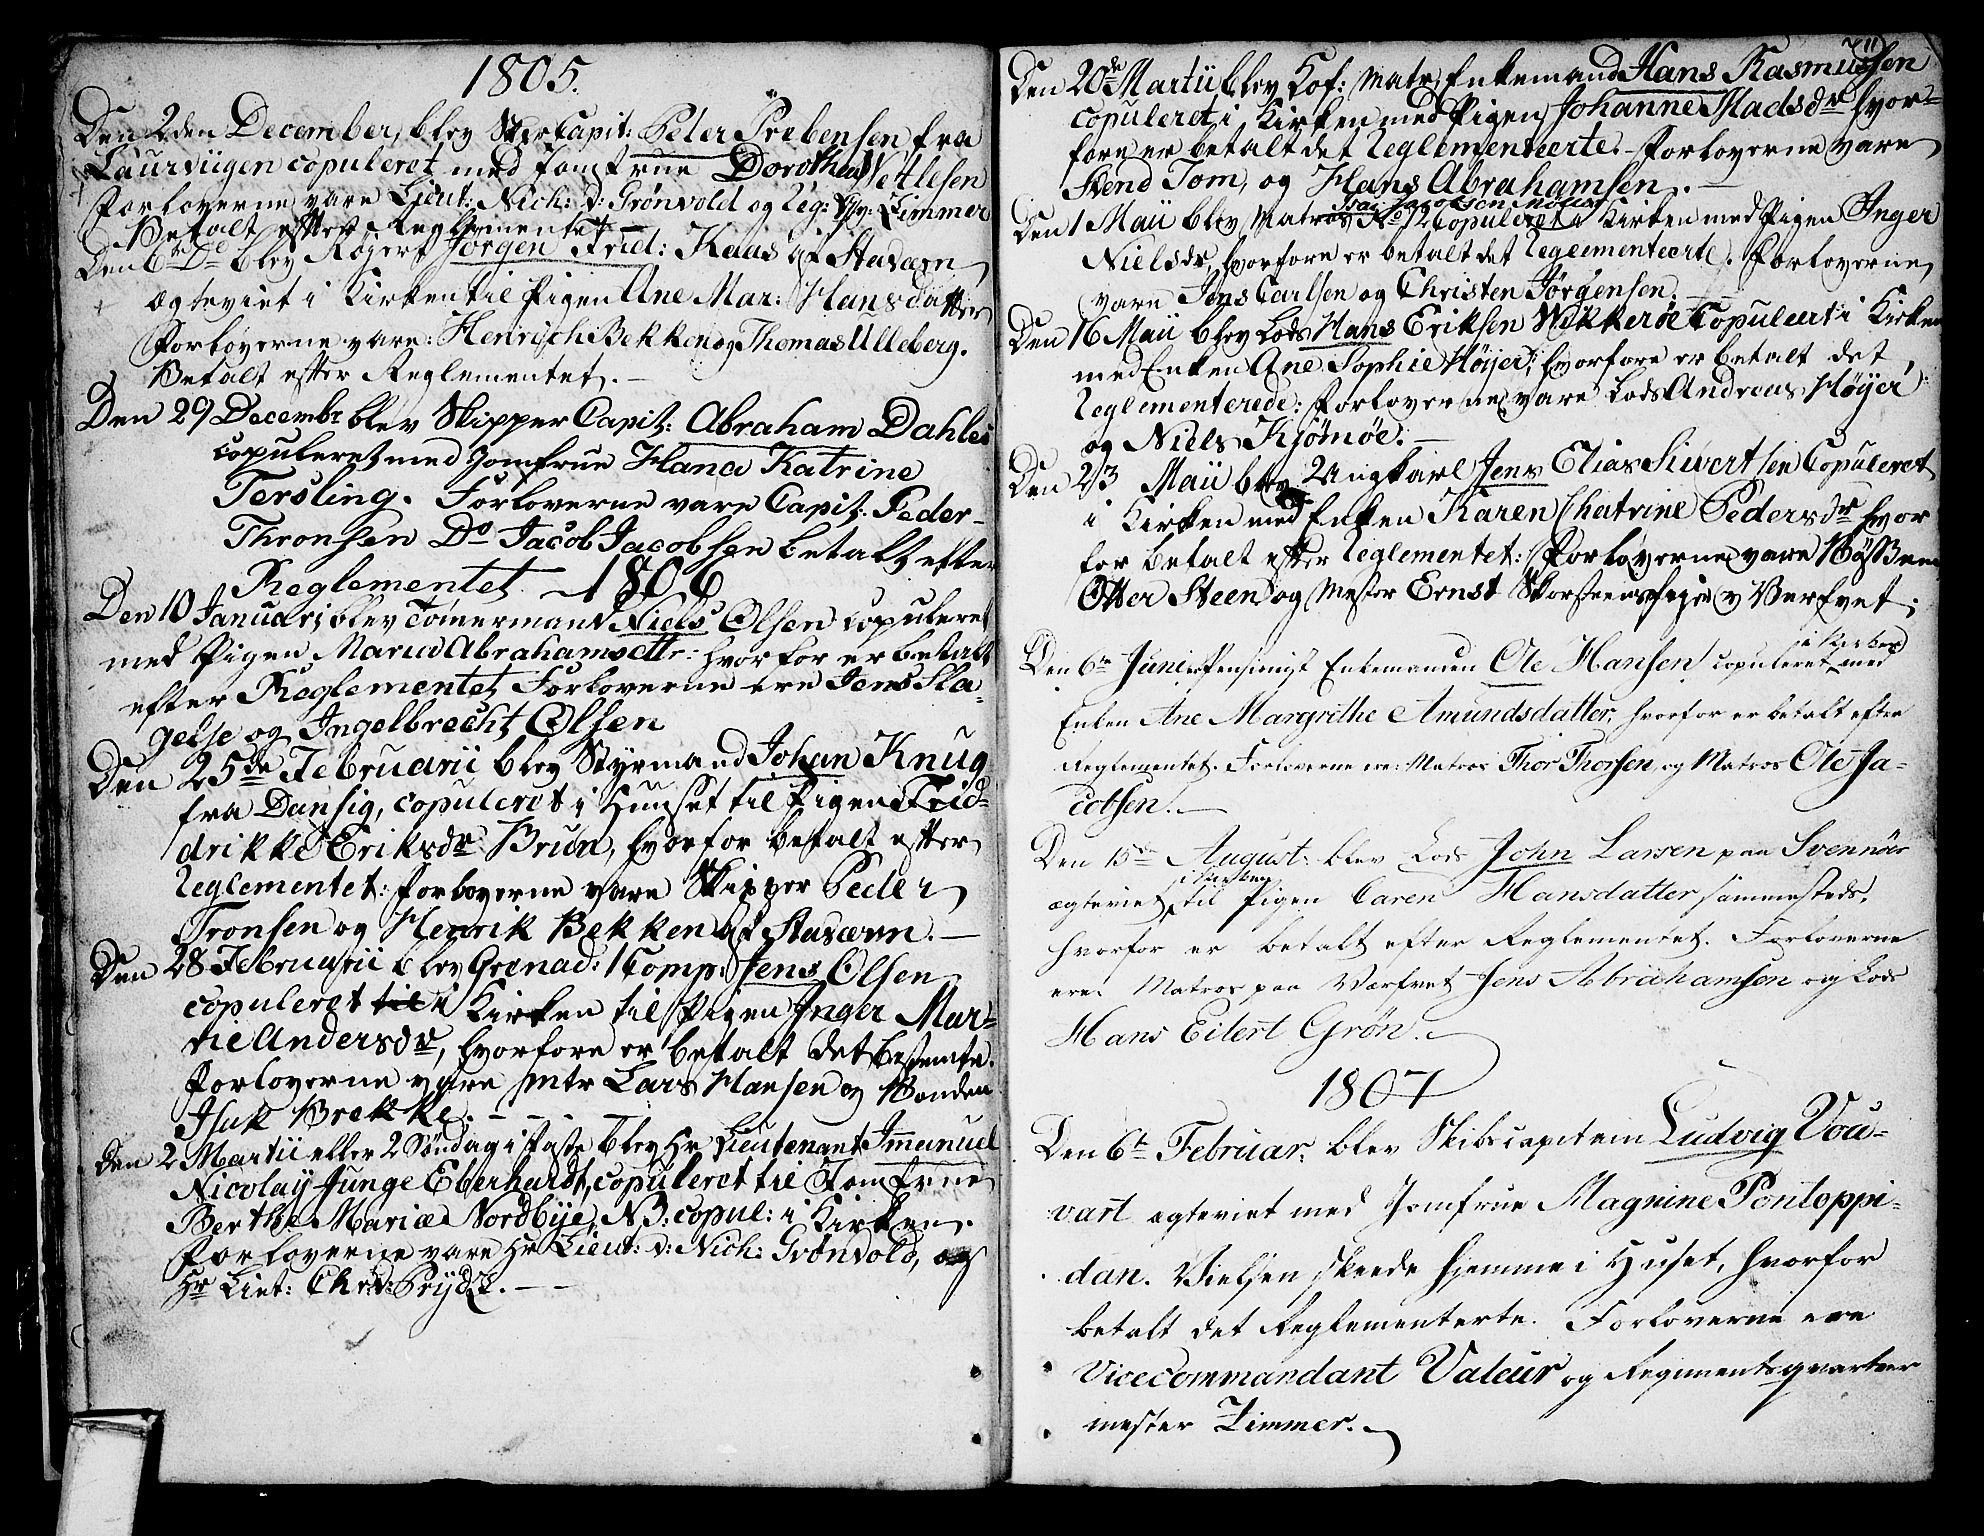 1805.
Den 2den December, blev Skibs Capit: Peter Prebensen fra
Laurviigen copuleret med Jomfrue Dorothea Vetlesen
Forloverne vare Lieut: Nich: d: Grönvold og Reg: Qv: Zimmer
Betalt efter Reglementet
Den 6te Do blev Jörgen Frid: Kaas af Staværn
ægteviet i Kirken til Pigen Ane Mar: Hansdatter
Forloverne vare: Henrich Bekken og Thomas Ulleberg.
Betalt efter Reglementet. —
Den 29 Decembr blev Skipper Capit: Abraham Dahler
copuleret med Jomfrue Hana Katrine
Tersling. Forloverne vare Capit: Peder
Thronsen Do Jacob Jacobsen betalt efter
Reglementet. — 1806
Den 10 Januari blev Tömermand Niels Olsen copuleret
med Pigen Maria Abrahamsdttr: hvorfor er betalt
efter Reglementet Forloverne ere Jens Sla-
gelse og Ingelbrecht Olsen
Den 25de Februarii blev Styrmand Johan Knug
fra Dansig, copuleret i Huuset til Pigen Frid-
drikke Eriksdr Brun, hvorfor betalt efter
Reglementet: Forloverne vare Skipper Peder
Tronsen og Henrik Bekken af Staværn. —
Den 28 Februarii blev Grenad: 1 Comp: Jens Olsen
copuleret til i Kirken til Pigen Inger Mar-
thie Andersdr, hvorfore er betalt det bestemte.
Forloverne vare Lars Hansen og Bonden
Isak Brekke. — — —
Den 2 Martii eller 2 Söndag i Faste blev Hr Lieutenant Immanuel
Nicolay Junge Eberhardt, copuleret til Jomfrue
Berthe Mariæ Nordbye, NB: copul: i Kirken.
Forloverne vare Hr Lieut: d: Nich: Grönvold, og
Hr Liet: Chrst: Prydz. — —
Den 20de Martii blev Hof: Matr: Enkemand Hans Rasmussen
copuleret i Kirken med Pigen Johanne Madsdr hvor-
fore er betalt det Reglementeerte. Forloverne vare
Svend Tom, og Hans Abrahamsen. —
Isac Jacobsen
Den 1 Maii blev Matros No 72 Copuleret i Kirken med Pigen Inger
Nielsdr, hvorfore er betalt det Reglementeerte. Forloverne
vare Jens Carlsen og Christen Jörgensen.
Den 16 Maii blev Lods Hans Eriksen Wekkeröe Copuleert i Kirken
med Enken Ane Sophie Höyer; hvorfore er betalt det
Reglementerede: Forloverne vare Lods Andreas Höyer
og Niels Kjömöe. —
Den 23 Maii blev Ungkarl Jens Elias Sivertsen Copuleret
i Kirken med Enken Karen Chatrine Pedersdr hvor
for betalt efter Reglementet: Forloverne vare
Otter Steen og Mester Ernst Skorsteensfejer v Verfvet;
Den 6te Juni Pensionist Enkemanden Ole Hansen copuleret i Kirken med
Enken Ane Margrithe Amundsdatter, hvorfor er betalt efter
Reglementet. Forloverne ere: Matros Thor Thorsen, og Matros Ole Ja-
cobsen. —
Den 15de August: blev Lods John Larsen paa Svennöer
i Kirken
ægteviet til Pigen Caren Hansdatter sammesteds,
hvorfor er betalt efter Reglementet. Forloverne
ere: Matros paa Værfvet Jens Abrahamsen og Lods
Hans Eilert Grön. —
1807
Den 6te Februar, blev Skibscapitein Ludvig Vou-
vart ægteviet med Jomfrue Magnine Pontoppi-
dan. Vielsen skeede hjemme i Huset, hvorfor
betalt det Reglementerte. Forloverne ere
Vicecommandant Valeur og Regimentsqvarteer
mester Zimmer. —